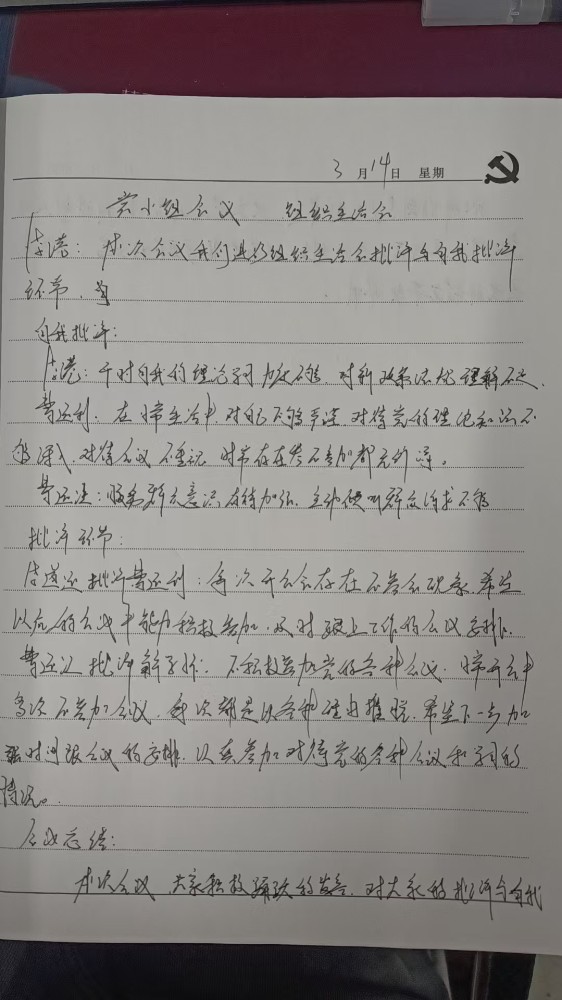 3月14日 星期
党小组会议 组织生活会
:本次会议我们进行组织生活会批评与自我批评
环节,
自我批评:
:平时自我的理论学习力度不够,对新政策泛化理解不足,
在日常生活中,对自己不够严谨,对待党的理论知识不
够深入,对待会议不重视,时常存在参不参加都无所谓。
:服务群众意识有待加强,主动倾听群众诉求不够
批评环节:
批评:每次开会会存在不参会现象,希望
以后的会议中能力积极参加,及时跟上工作的会议安排。
批评解:不积极参加党的各种会议,日常开会中
多次不参加会议,每次都是以各种理由推脱,希望下一步加
强时间跟会议的安排,认真参加对待党的各种会议和学习的
情况。
会议总结:
本次会议 大家积极踊跃的发言,对大家的批评与自我